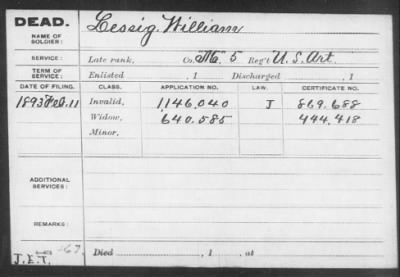 DEAD.
NAME OF SOLDIER: Lessig William
SERVICE: Late rank, Co. M 5 Reg't U. S. Art.
TERM OF SERVICE: Enlisted , 1 Discharged , 1
DATE OF FILING. CLASS. APPLICATION NO. LAW. CERTIFICATE NO.
1893 Feb. 11 Invalid, 1,146,040 J 869,688
Widow, 640,585 444,418
Minor,
ADDITIONAL SERVICES:
REMARKS:
Died , 1 , at
J.E.T.